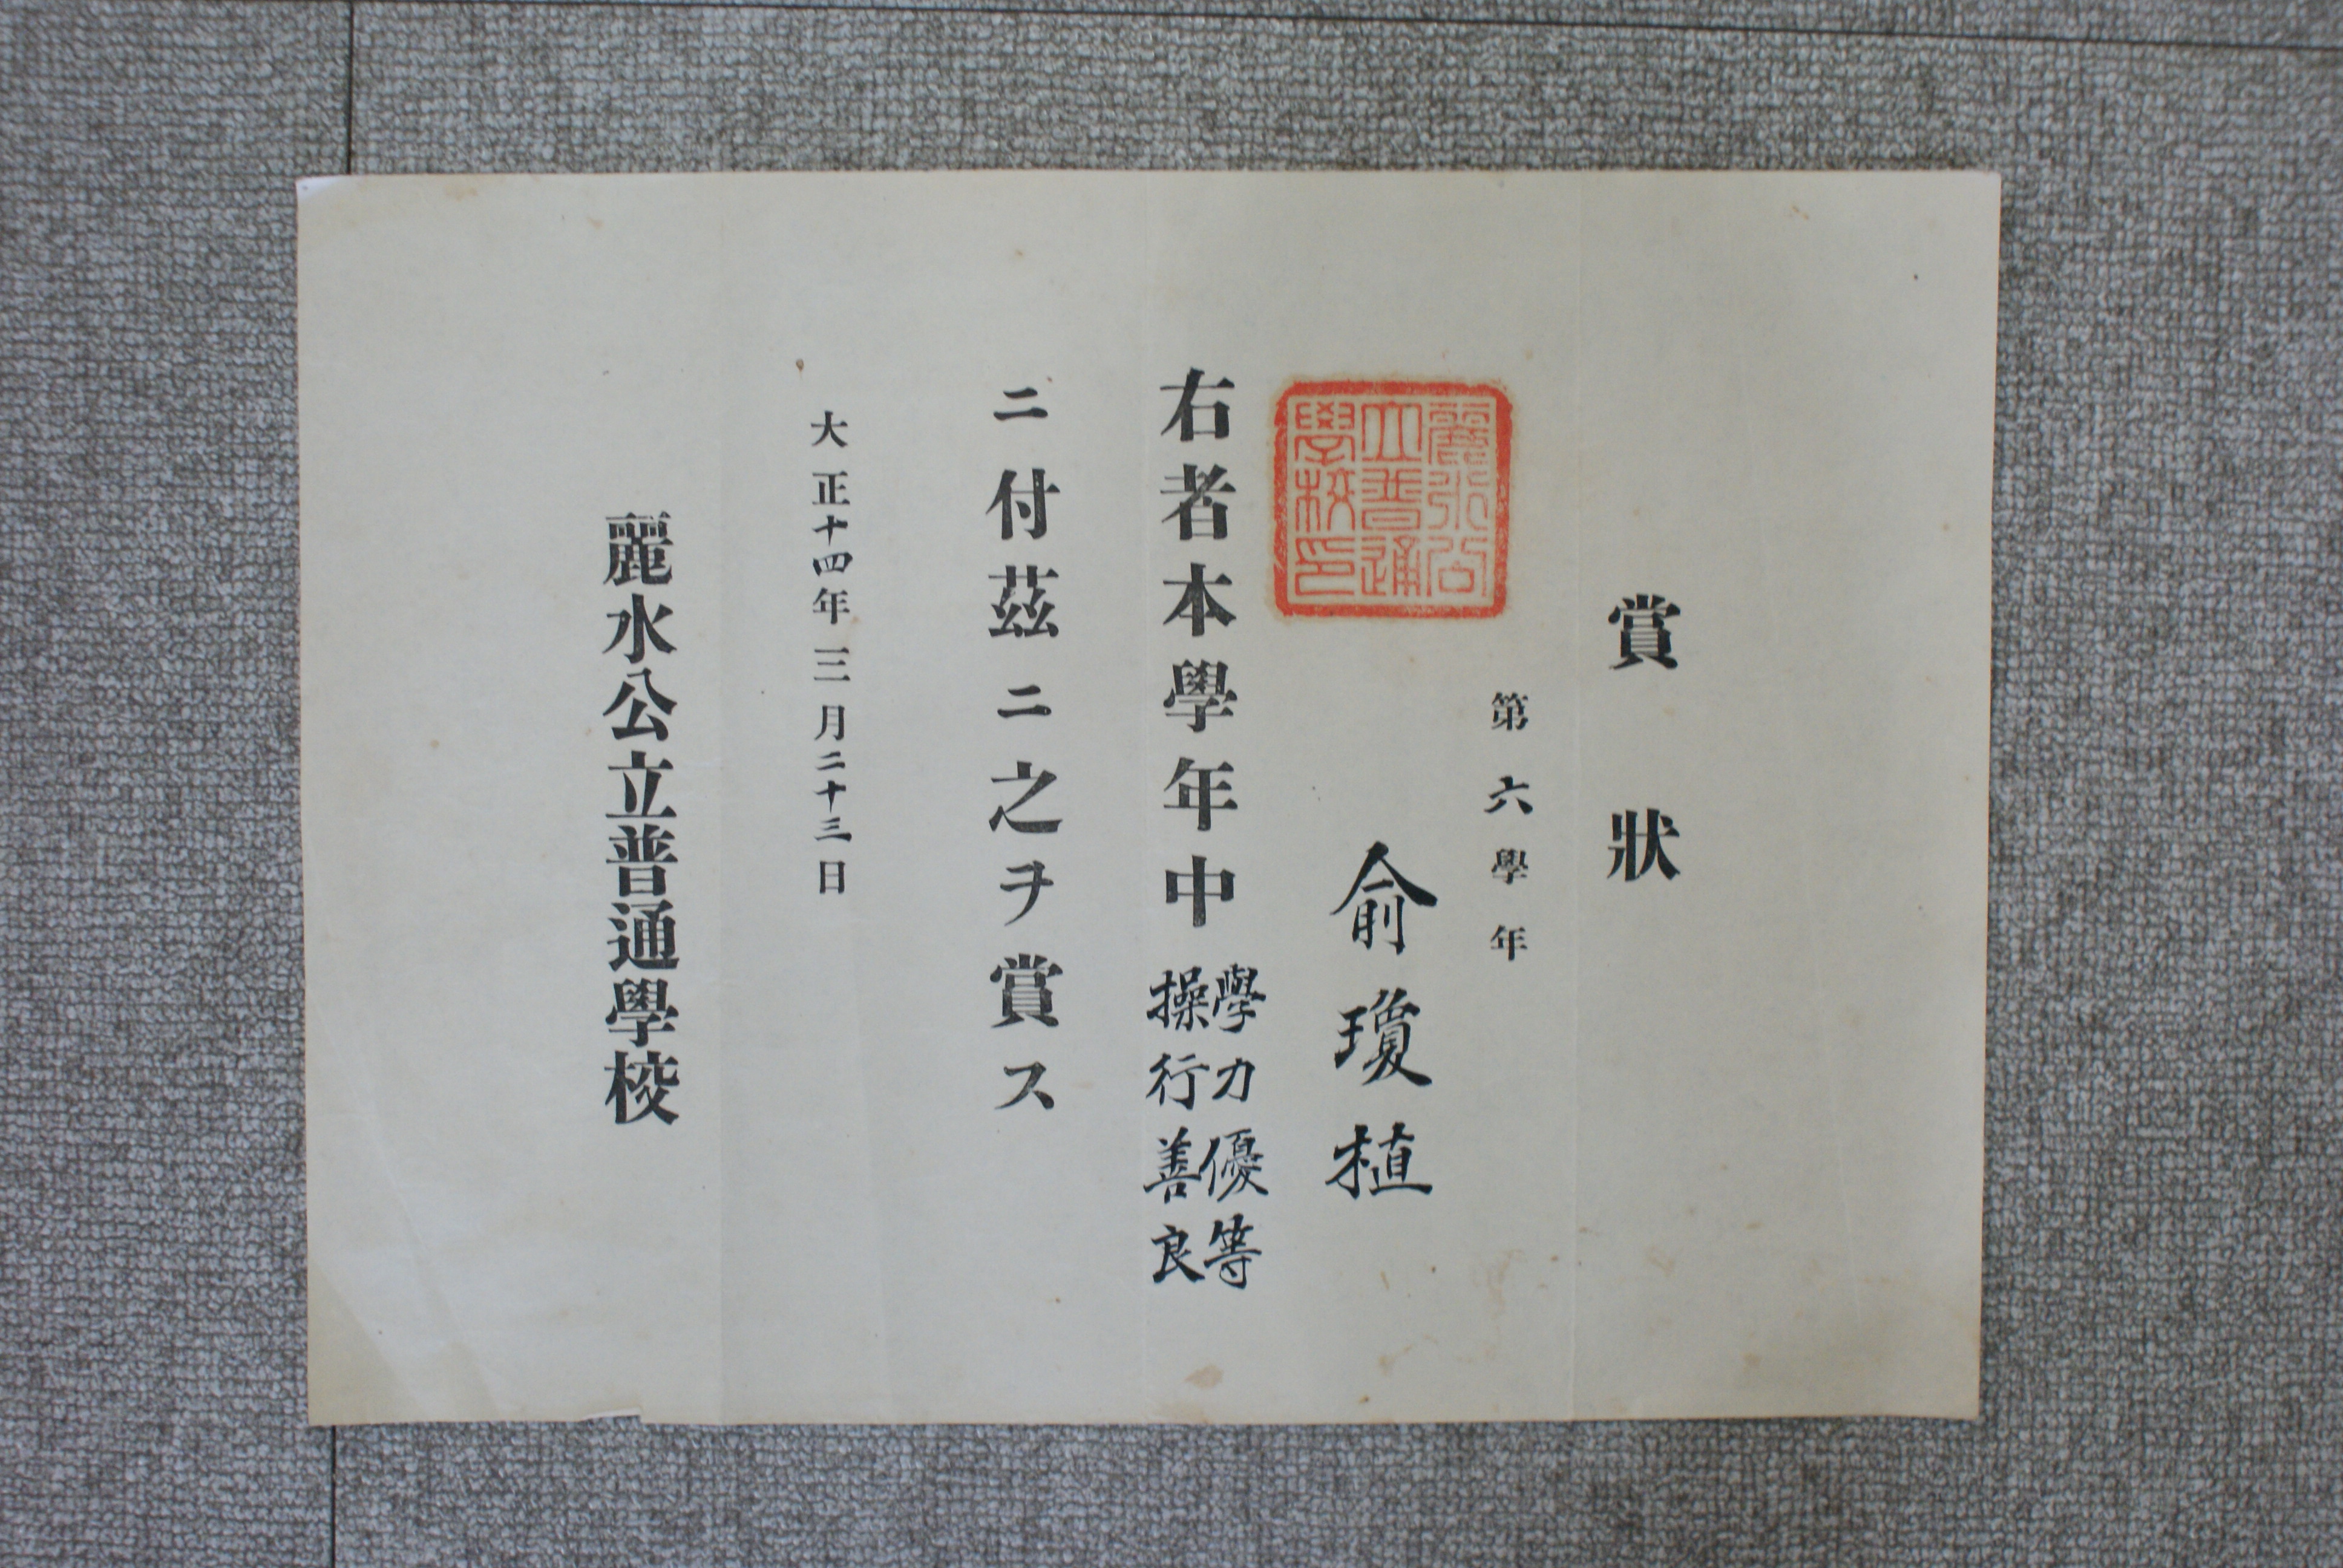 賞狀
第六學年
俞瓊植
麗水公
立普通
學校印
右者本學年中學力優等
操行善良
ニ付茲ニ之ヲ賞ス
大正十四年三月二十三日
麗水公立普通學校